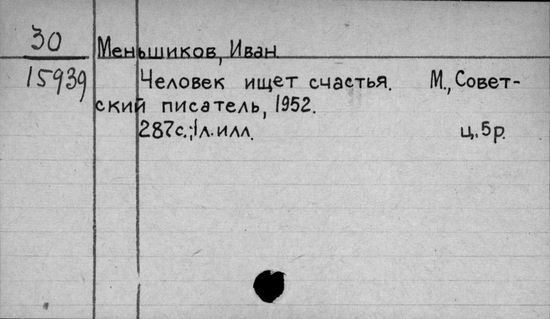 30
15939
Меньшиков, Иван
Человек ищет счастья. М., Совет-
ский писатель, 1952.
287с.; 1л. илл. ц. 5р.